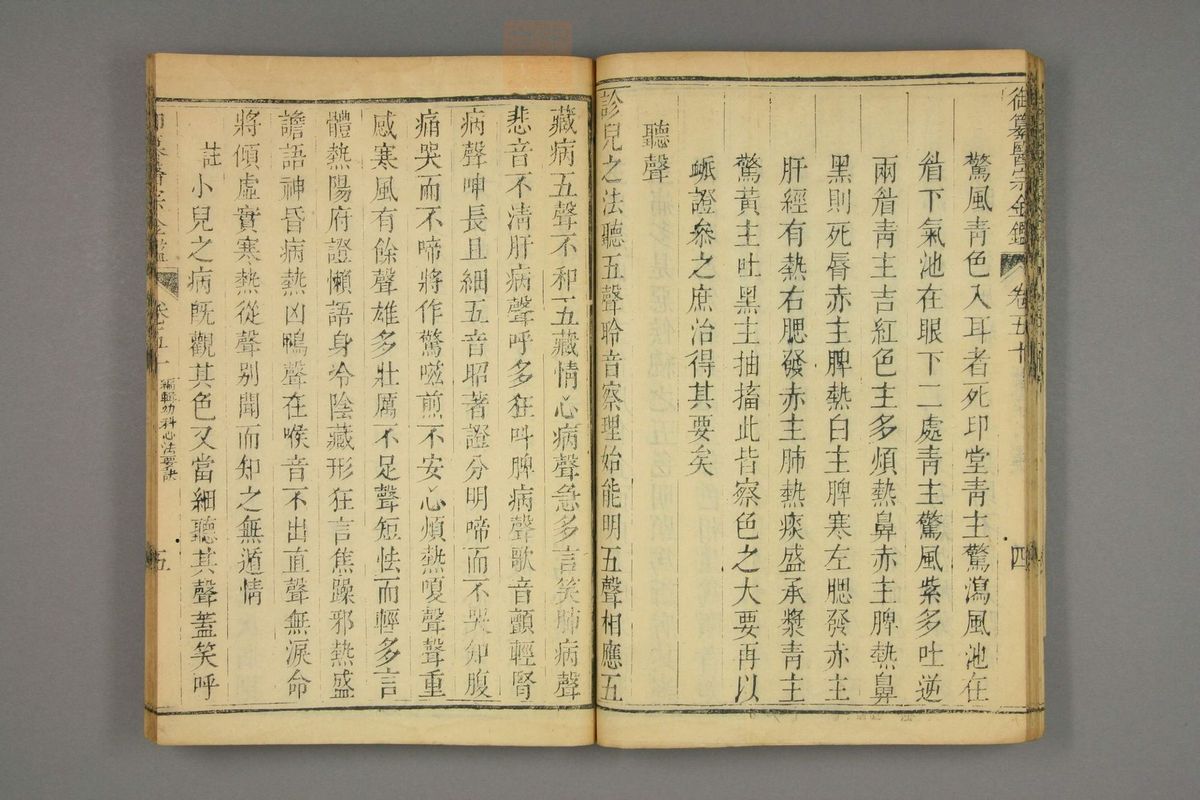 御纂醫宗金鑑 卷五十 四
驚風青色入耳者死印堂青主驚瀉風池在
眉下氣池在眼下二處青主驚風紫多吐逆
兩眉青主吉紅色主多煩熱鼻赤主脾熱鼻
黑則死唇赤主脾熱白主脾寒左腮發赤主
肝經有熱右腮發赤主肺熱痰盛承漿青主
驚黃主吐黑主抽搐此皆察色之大要再以
脈證叅之庶治得其要矣
聽聲
診兒之法聽五聲聆音察理始能明五聲相應五
藏病五聲不和五藏情心病聲急多言笑肺病聲
悲音不清肝病聲呼多狂叫脾病聲歌音顫輕腎
病聲呻長且細五音昭著證分明啼而不哭知腹
痛哭而不啼將作驚嗞煎不安心煩熱嗄聲聲重
感寒風有餘聲雄多壯厲不足聲短怯而輕多言
體熱陽府證懶語身冷陰藏形狂言焦躁邪熱盛
譫語神昏病熱凶鴨聲在喉音不出直聲無淚命
將傾虛實寒熱從聲別聞而知之無遁情
註小兒之病旣觀其色又當細聽其聲蓋笑呼
卷五十 編輯幼科心法要訣 五